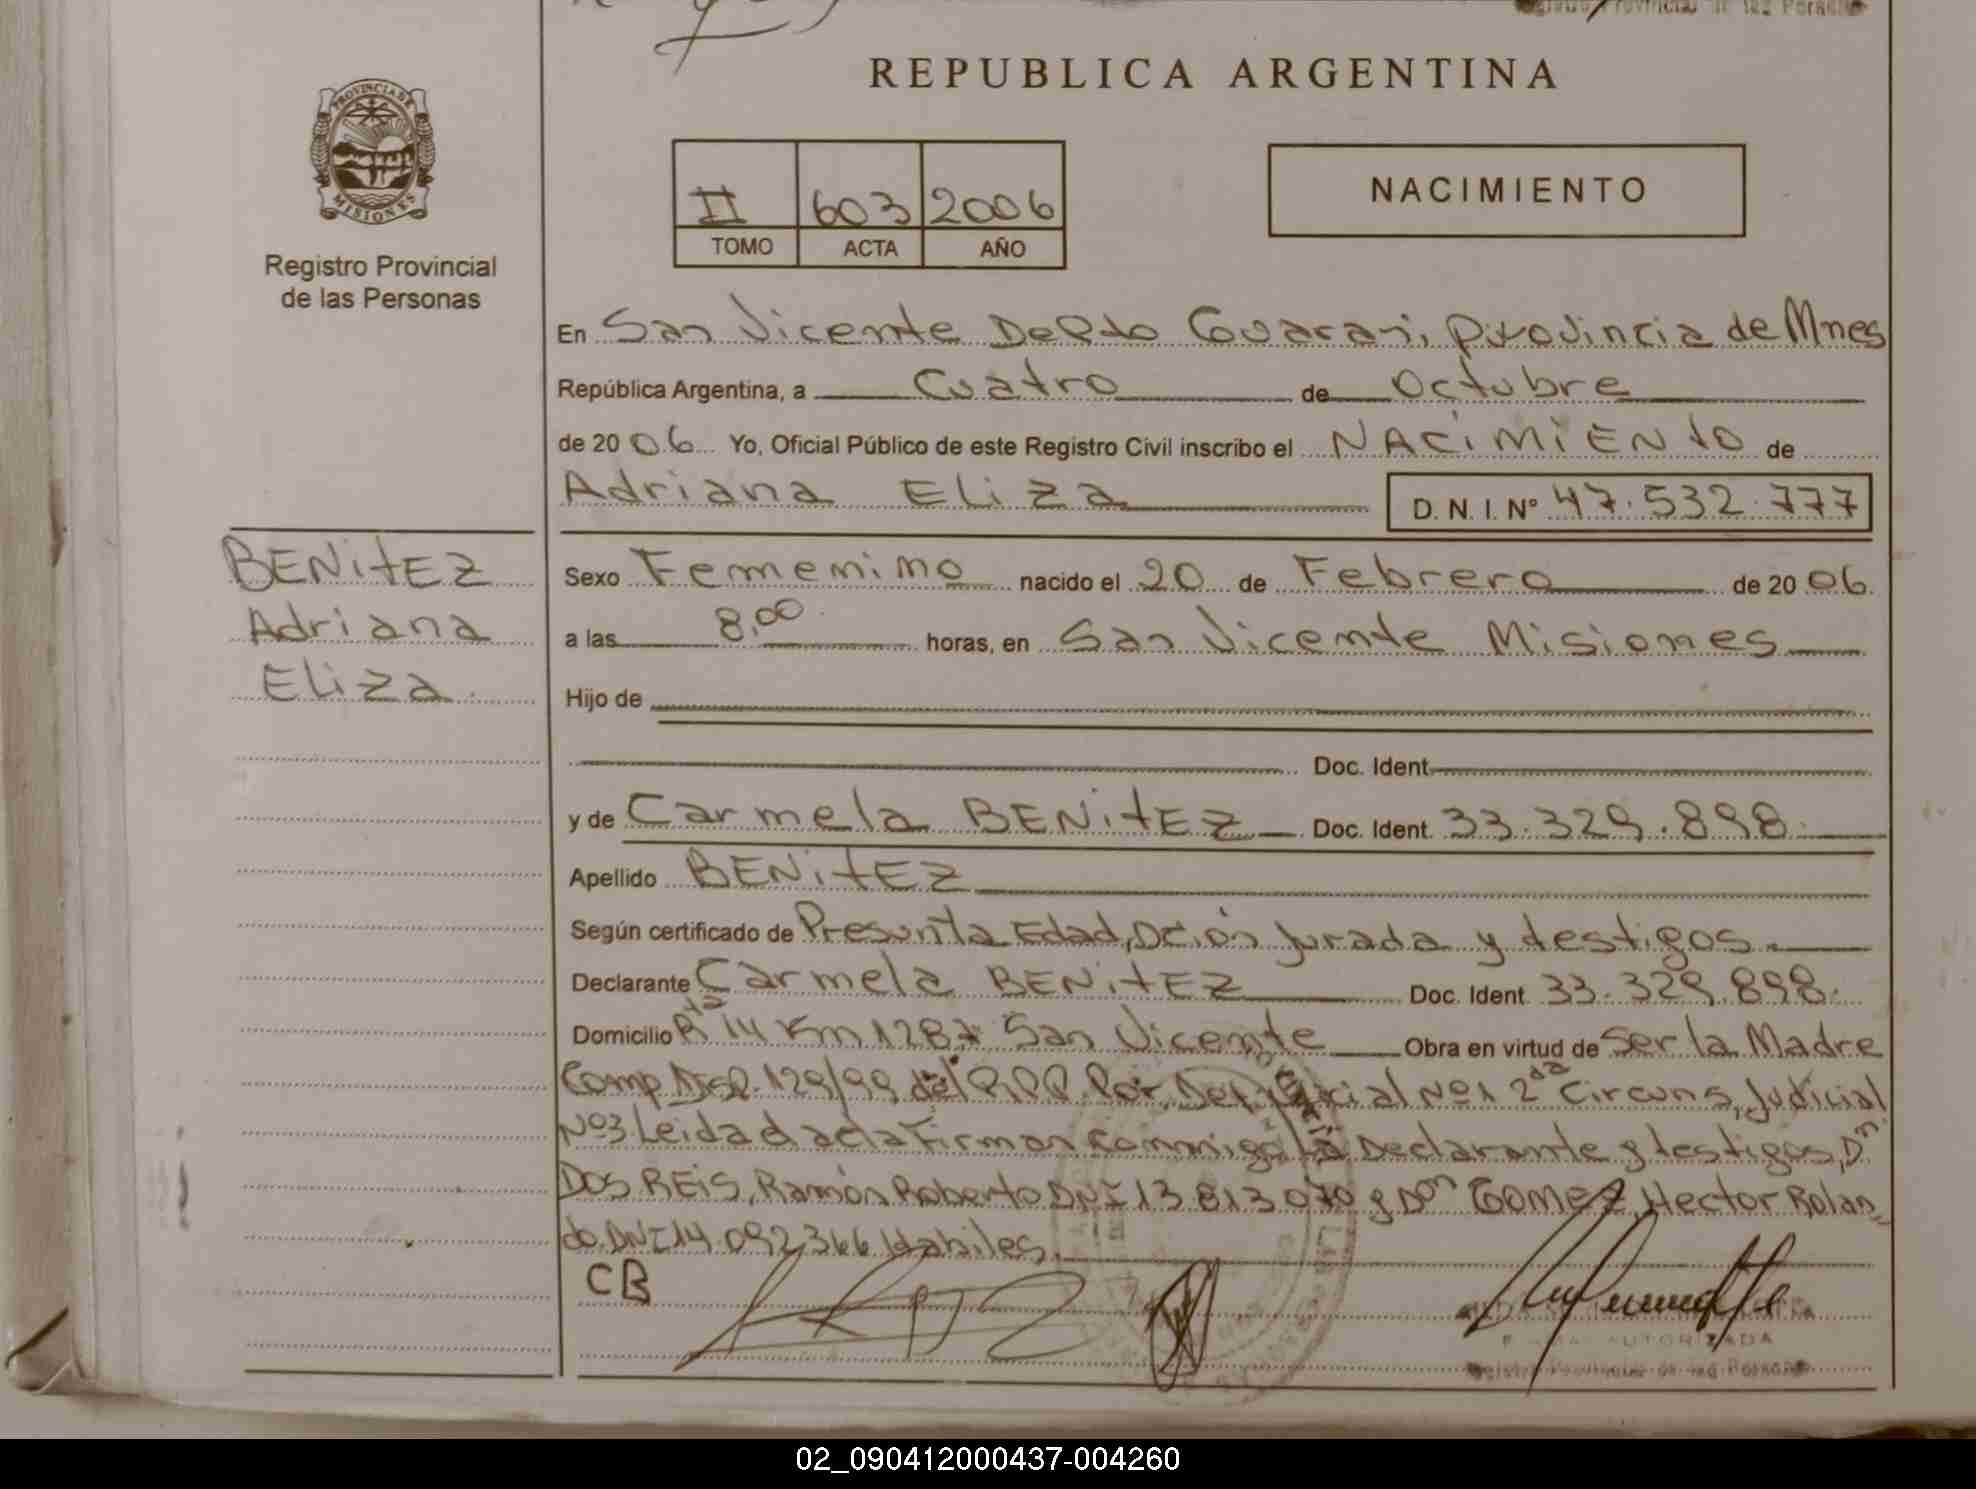 REPUBLICA ARGENTINA
PROVINCIA DE
MISIONES
Registro Provincial
de las Personas
II 603 2006
TOMO ACTA AÑO
NACIMIENTO
En San Vicente Depto Guarani, provincia de Mnes
República Argentina, a Cuatro de Octubre
de 2006 Yo, Oficial Público de este Registro Civil inscribo el NACIMIENTO de
Adriana Eliza D. N. I. Nº 47.532.777
BENITEZ
Adriana
Eliza.
Sexo Femenino nacido el 20 de Febrero de 2006.
a las 8,00 horas, en San Vicente Misiones
Hijo de
Doc. Ident.
y de Carmela BENITEZ Doc. Ident. 33.329.898.
Apellido BENITEZ
Según certificado de Presunta Edad, Dción Jurada y testigos.
Declarante Carmela BENITEZ Doc. Ident. 33.329.898.
Domicilio Rta 14 Km 1287 San Vicente Obra en virtud de Ser la Madre
Comp Disp. 129/99 del R.P.P. Por Def. Oficial Nº1 2da Circuns. Judicial
Nº3 Leida el acta Firman Conmigo la Declarante y testigos, Dn
DOS REIS, Ramón Roberto DNI 13.813.070 y Don GOMEZ, Hector Rolan-
do. DNI 14.092.366 Habiles.
CB
AUTORIZADA
Registro Provincial de las Personas
02_090412000437-004260